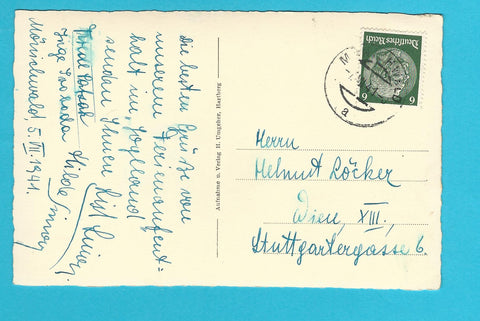 Die besten Grüße von
unserem Ferienaufent=
halt im „Jogelland"
senden Ihnen
Inge
Hilde
Mönichwald, 5. VII. 1941.
Aufnahme u. Verlag H. Umgeher, Hartberg
Deutsches Reich
6 6
a
Herrn
Helmut Löcker
Wien, XIII,
Stuttgartergasse 6.